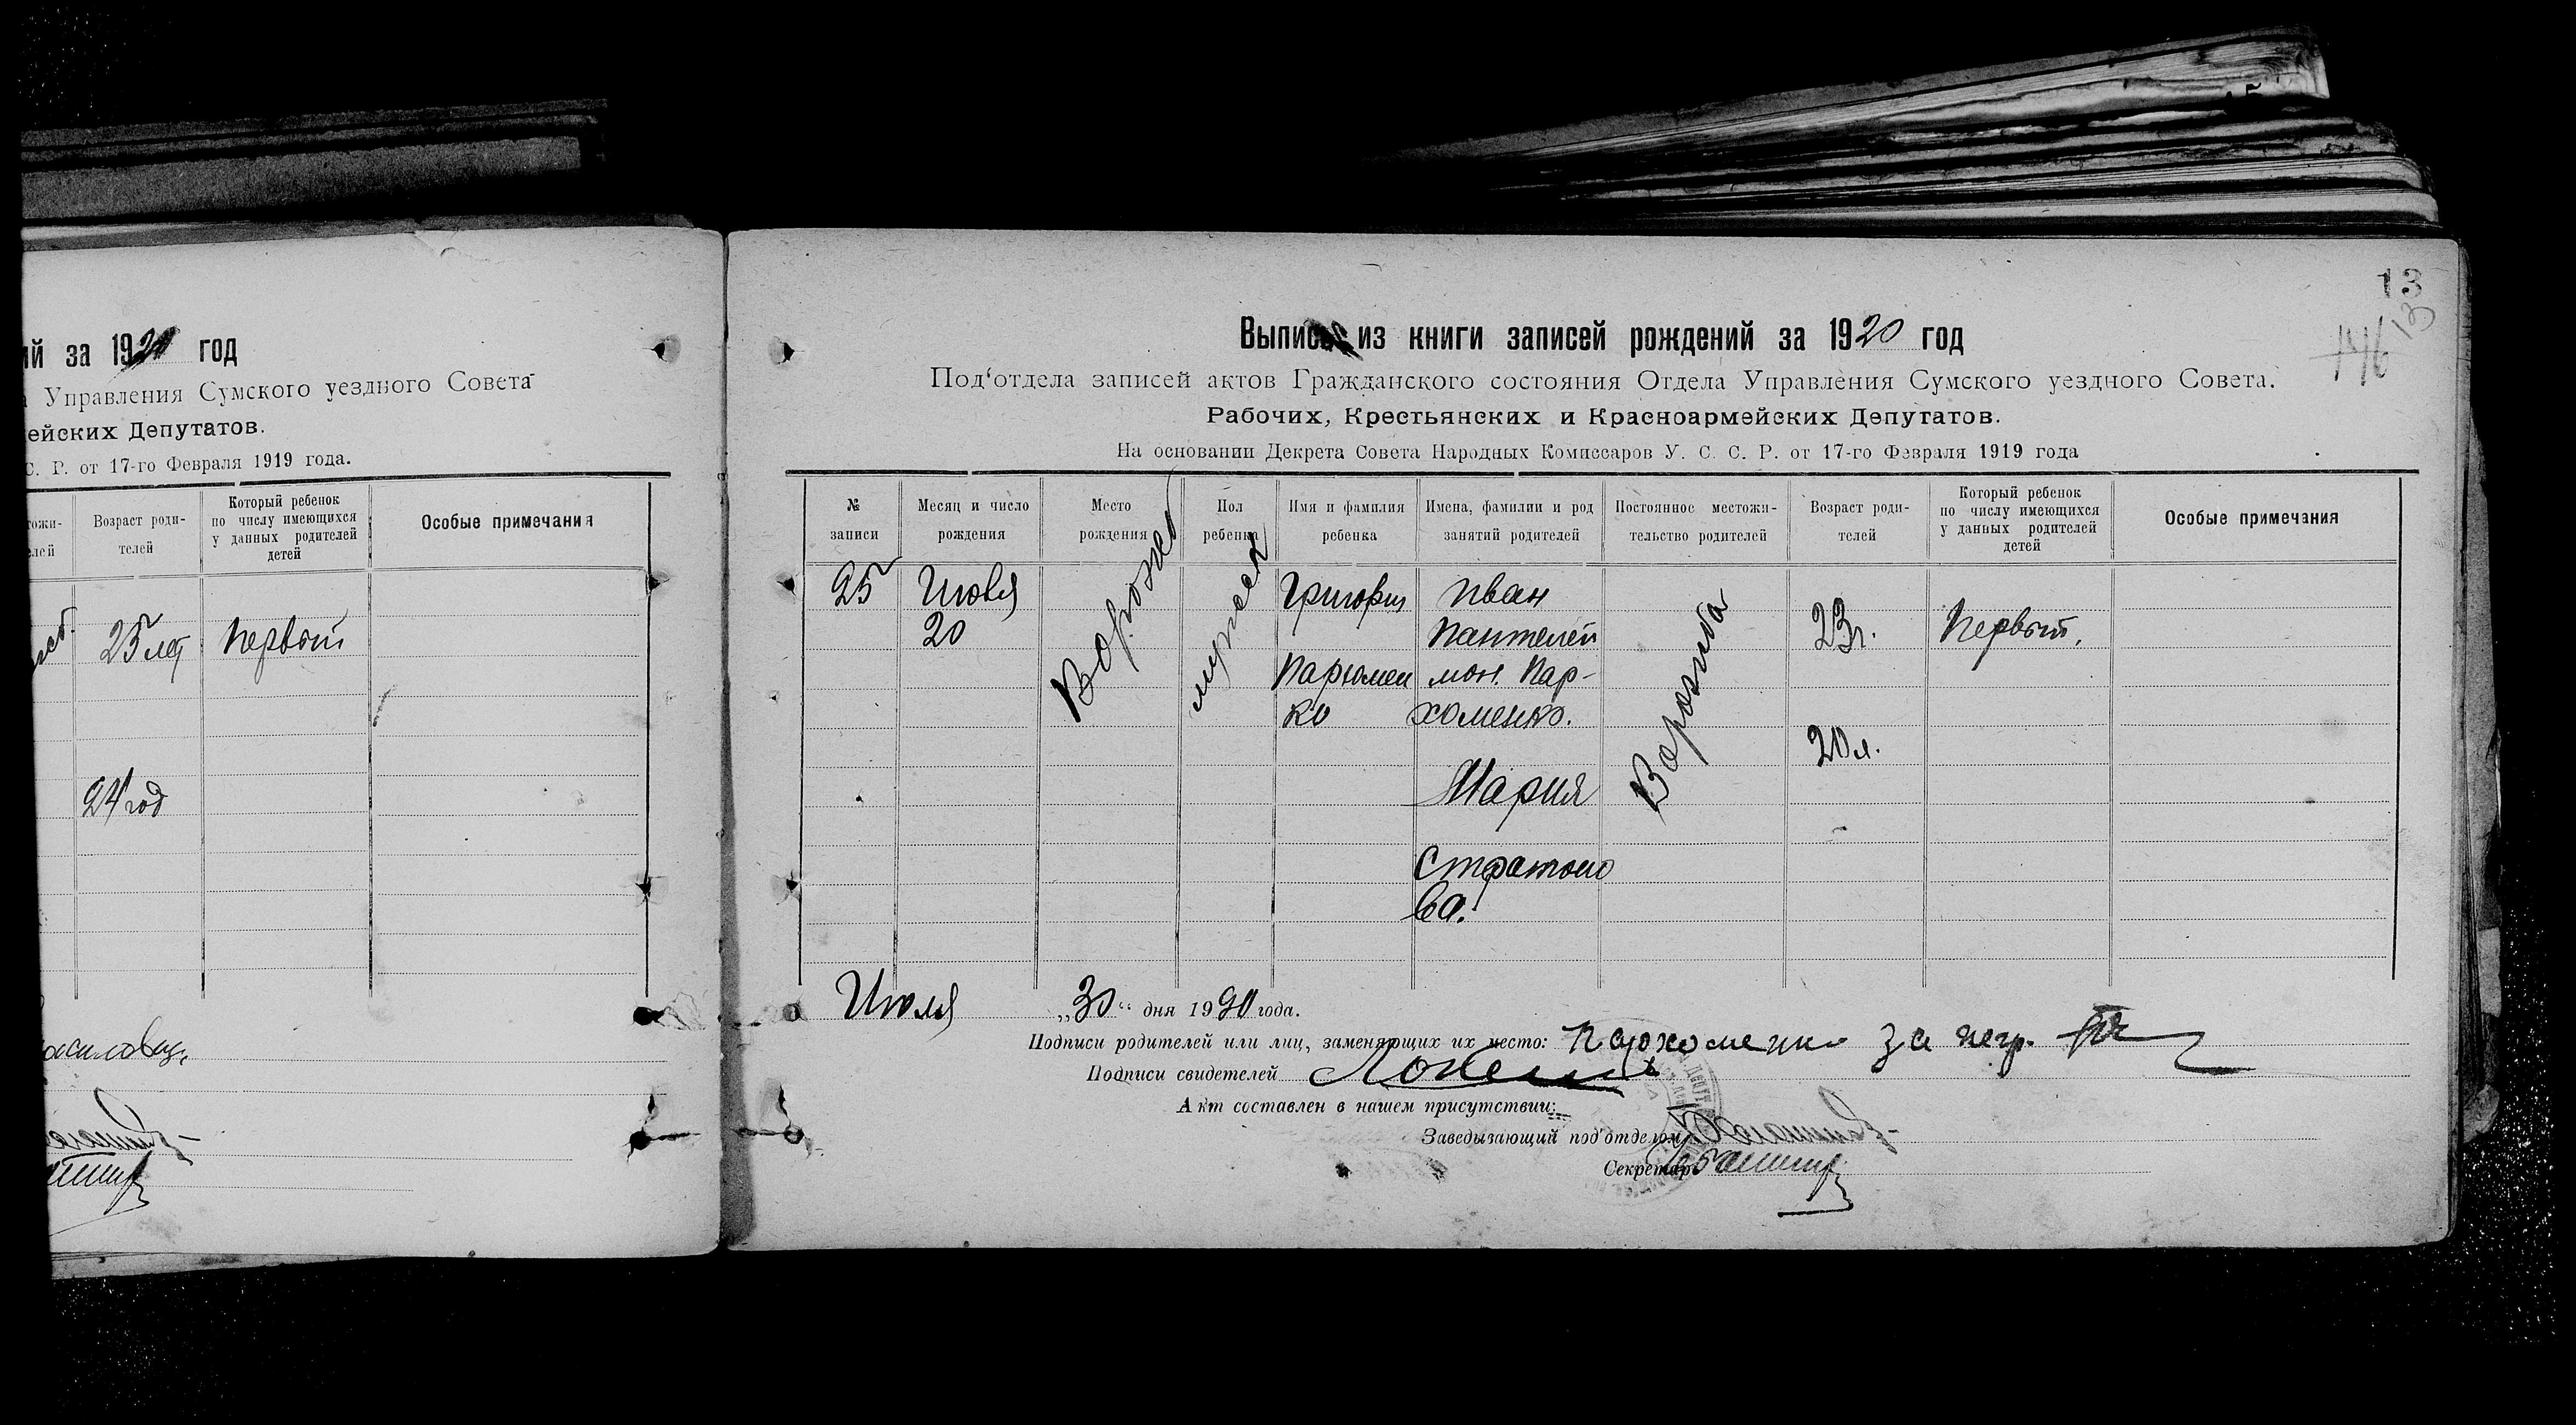 й за 1920 год
Управления Сумского уездного Совета
ейских Депутатов.
С. Р. от 17-го Февраля 1919 года.
Возраст роди-
телей
Который ребенок
по числу имеющихся
у данных родителей
детей
Особые примечания
25 лет
Первый
24 год
13
13
146
Выпись из книги записей рождений за 1920 год
Под‘отдела записей актов Гражданского состояния Отдела Управления Сумского уездного Совета.
Рабочих, Крестьянских и Красноармейских Депутатов.
На основании Декрета Совета Народных Комиссаров У. С. С. Р. от 17-го Февраля 1919 года
№
записи
Месяц и число
рождения
Место
рождения
Пол
ребенка
Имя и фамилия
ребенка
Имена, фамилии и род
занятий родителей
Постоянное местожи-
тельство родителей
Возраст роди-
телей
Который ребенок
по числу имеющихся
у данных родителей
детей
Особые примечания
25
Июля
20
Ворожба
мужеск
Григорий
Пархомен
ко
Иван
Пантелей
мон. Пар-
хоменко.
Мария
Стратоно
ва.
Ворожба
23 г.
20 л.
Первый.
Июля „30“ дня 1920 года.
Подписи родителей или лиц, заменяющих их место: Пархоменко за негр.
Подписи свидетелей
Акт составлен в нашем присутствии:
Заведывающий под‘отделом
Секретарь